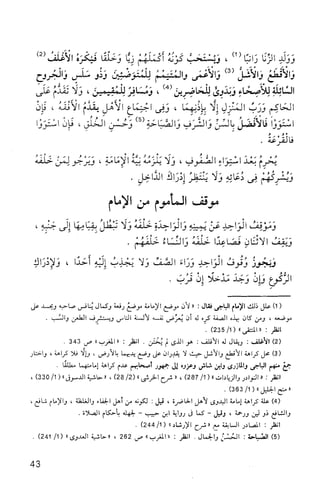 وَوَلَدِ الزِّنَا رَاتِبًا (1) ، وَيُسْتَحَبُّ كَوْنُهُ أَكْمَلَهُمْ زِيًّا وَخَلْقًا فَيُكْرَهُ الْأَغْلَفُ (2)
وَالْأَقْطَعُ وَالْأَشَلُّ (3) وَالْأَعْمَى وَالْمُتَيَمِّمُ لِلْمُتَوَضِّئِينَ وَذُو سَلَسٍ وَالْجُرُوحِ
السَّائِلَةِ لِلْأَصِحَّاءِ وَبَدَوِيٌّ لِلْحَاضِرِينَ (4) ، وَمُسَافِرٌ لِلْمُقِيمِينَ ، وَلَا تَقَدُّمَ عَلَى
الْحَاكِمِ وَرَبِّ الْمَنْزِلِ إِلَّا بِإِذْنِهِمَا ، وَفِي اجْتِمَاعِ الْأَهْلِ يُقَدَّمُ الْأَفْقَهُ ، فَإِنْ
اسْتَوَوْا فَالْأَفْضَلُ بِالسِّنِّ وَالشَّرَفِ وَالصَّبَاحَةِ (5) وَحُسْنِ الْخُلُقِ ، فَإِنْ اسْتَوَوْا
فَالْقُرْعَةُ .
يُحْرِمُ بَعْدَ اسْتِوَاءِ الصُّفُوفِ ، وَلَا يَلْزَمُهُ نِيَّةُ الْإِمَامَةِ ، وَيَرْجُو لِمَنْ خَلْفَهُ
وَيُشْرِكُهُمْ فِي دُعَائِهِ وَلَا يَنْتَظِرُ إِدْرَاكَ الدَّاخِلِ .
موقف المأموم من الإمام
وَمَوْقِفُ الْوَاحِدِ عَنْ يَمِينِهِ وَالْوَاحِدَةِ خَلْفَهُ وَلَا تَبْطُلُ بِقِيَامِهَا إِلَى جَنْبِهِ ،
وَيَقِفُ الِاثْنَانِ فَصَاعِدًا خَلْفَهُ وَالنِّسَاءُ خَلْفَهُمْ .
وَيَجُوزُ وُقُوفُ الْوَاحِدِ وَرَاءَ الصَّفِّ وَلَا يَجْذِبُ إِلَيْهِ أَحَدًا ، وَلِإِدْرَاكِ
الرُّكُوعِ وَإِنْ وَجَدَ مَدْخَلًا إِنْ قَرُبَ .
(1) علل ذلك الإمام الباجي فقال : « لأن موضع الإمامة موضع رفعة وكمال يُنافَس صاحبه ويحسد على
موضعه ، ومن كان بهذه الصفة كره له أن يُعرِّض نفسه لألسنة الناس ويستشرف الطعن والسب .
انظر : « المنتقى » (1/ 235) .
(2) الأغلف : ويقال له الأقلف : هو الذي لم يُختن . انظر : « المغرب » ص 343 .
(3) محل كراهة الأقطع والأشل حيث لا يقدران على وضع يديهما بالأرض ، وإلا فلا كراهة ، واختار
جمعٌ منهم الباجي والمازري وابن شاس وعزوه إلى جمهور أصحابهم عدم كراهة إمامتهما مطلقًا .
انظر : « النوادر والزيادات » (1/ 287) ، « شرح الخرشي » (2/ 28) ، « حاشية الدسوقي » (1/ 330) ،
« منح الجليل » (1/ 363) .
(4) علة كراهة إمامة البدوي لأهل الحاضرة ، قيل : لكونه من أهل الجفاء والغلظة ، والإمام شافع ،
والشافع ذو لين ورحمة ، وقيل - كما في رواية ابن حبيب - لجهله بأحكام الصلاة .
انظر : المصادر السابقة مع « شرح الإرشاد » (1/ 244) .
(5) الصباحة : الحُسْنُ والجمال . انظر : « المغرب » ص 262 ، « حاشية العدوي » (1/ 241) .
43